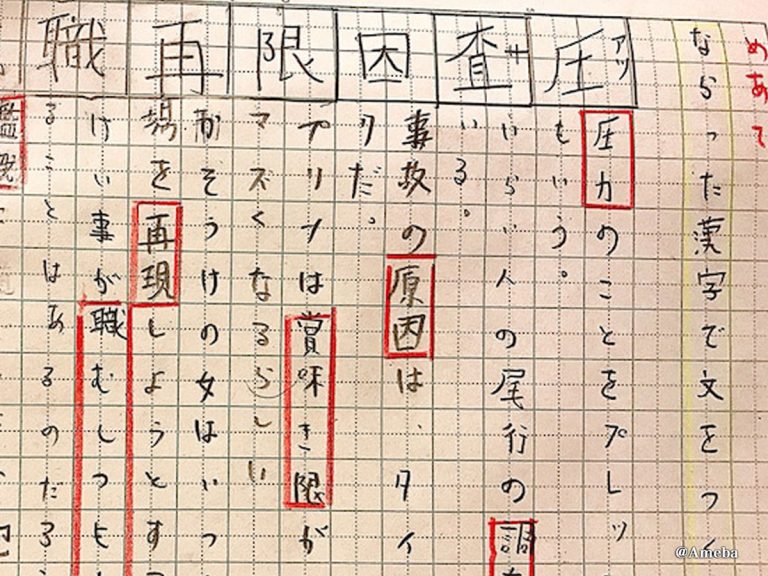 めあて
ならった漢字で文をつ
圧 アツ
圧力のことをプレッ
もいう。
査 サ
いらい人の尾行の調
いる。
因
事故の原因は、タイ
だ。
限
プリンは賞味き限が
マズくなるらしい
再
かそうけの女はいつ
場を再現しようとす
職
けい事が職むしつも
ることはあるのだろ
@Ameba